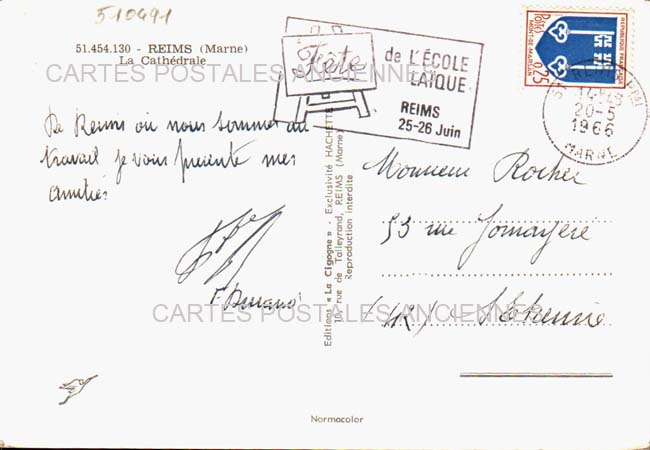 510491
51.454.130 - REIMS (Marne)
La Cathédrale
CARTES POSTALES ANCIENNES
Fête
de L'ÉCOLE
LAÏQUE
REIMS
25-26 Juin
Postes
RÉPUBLIQUE FRANÇAISE
MONT-DE-MARSAN
0,25
REIMS
14-45
20-5
1966
MARNE
De Reims où nous sommes au
travail je vous présente mes
amitiés
Editions « La Cigogne » - Exclusivité HACHETTE
10, rue de Talleyrand, REIMS (Marne)
Reproduction interdite
Monsieur Rocher
53 rue
St Etienne
CARTES POSTALES ANCIENNES
Normacolor